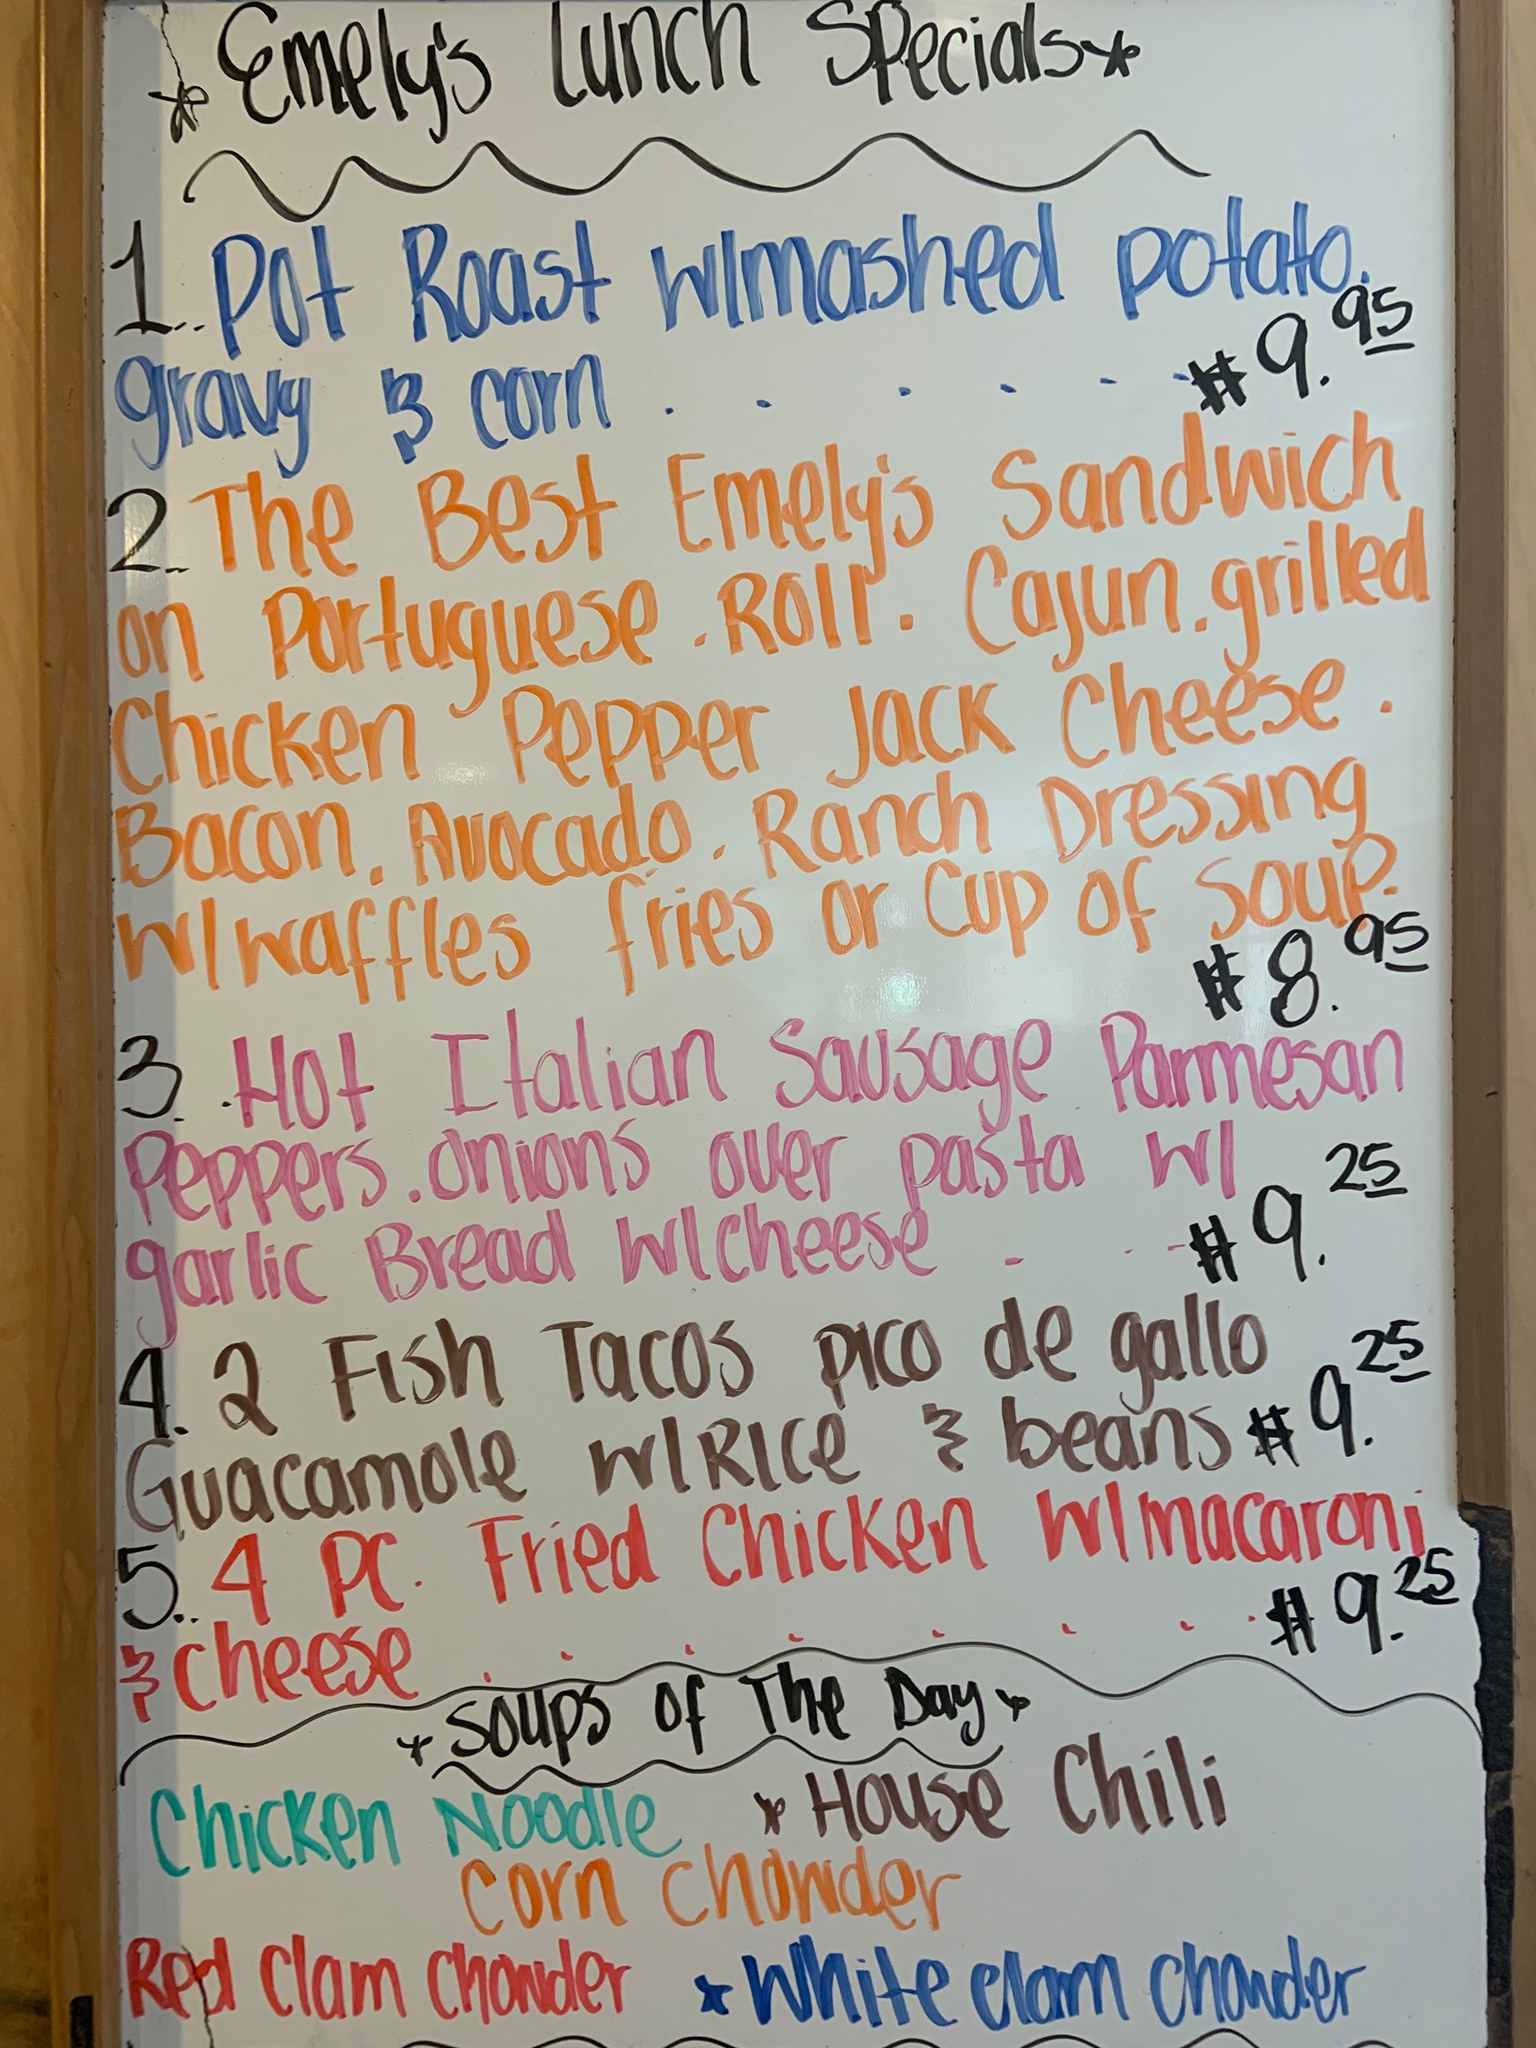 * Emely's Lunch Specials *
1.. Pot Roast w/mashed potato.
gravy & corn . . . . . . $9.95
2.. The Best Emely's Sandwich
on Portuguese . Roll . Cajun . grilled
Chicken Pepper Jack Cheese .
Bacon . Avocado . Ranch Dressing
w/waffles fries or Cup of soup.
$8.95
3. . Hot Italian Sausage Parmesan
Peppers . onions over pasta w/
garlic Bread w/cheese . . . . $9.25
4. 2 Fish Tacos pico de gallo
Guacamole w/Rice & beans $9.25
5.. 4 PC. Fried Chicken w/macaroni
& cheese . . . . . . . . $9.25
* Soups of The Day *
Chicken Noodle * House Chili
Corn Chowder
Red Clam Chowder * White Clam Chowder